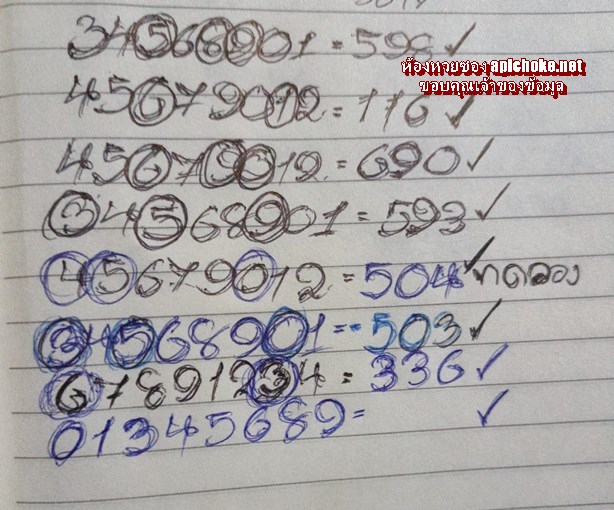 34568901 = 598 ✓
ห้องหวยซอง apichoke.net
ขอบคุณเจ้าของข้อมูล
45679012 = 116 ✓
45679012 = 690 ✓
34568901 = 593 ✓
45679012 = 504 ✓ ทดลอง
34568901 = 503 ✓
67891234 = 336 ✓
01345689 = ✓